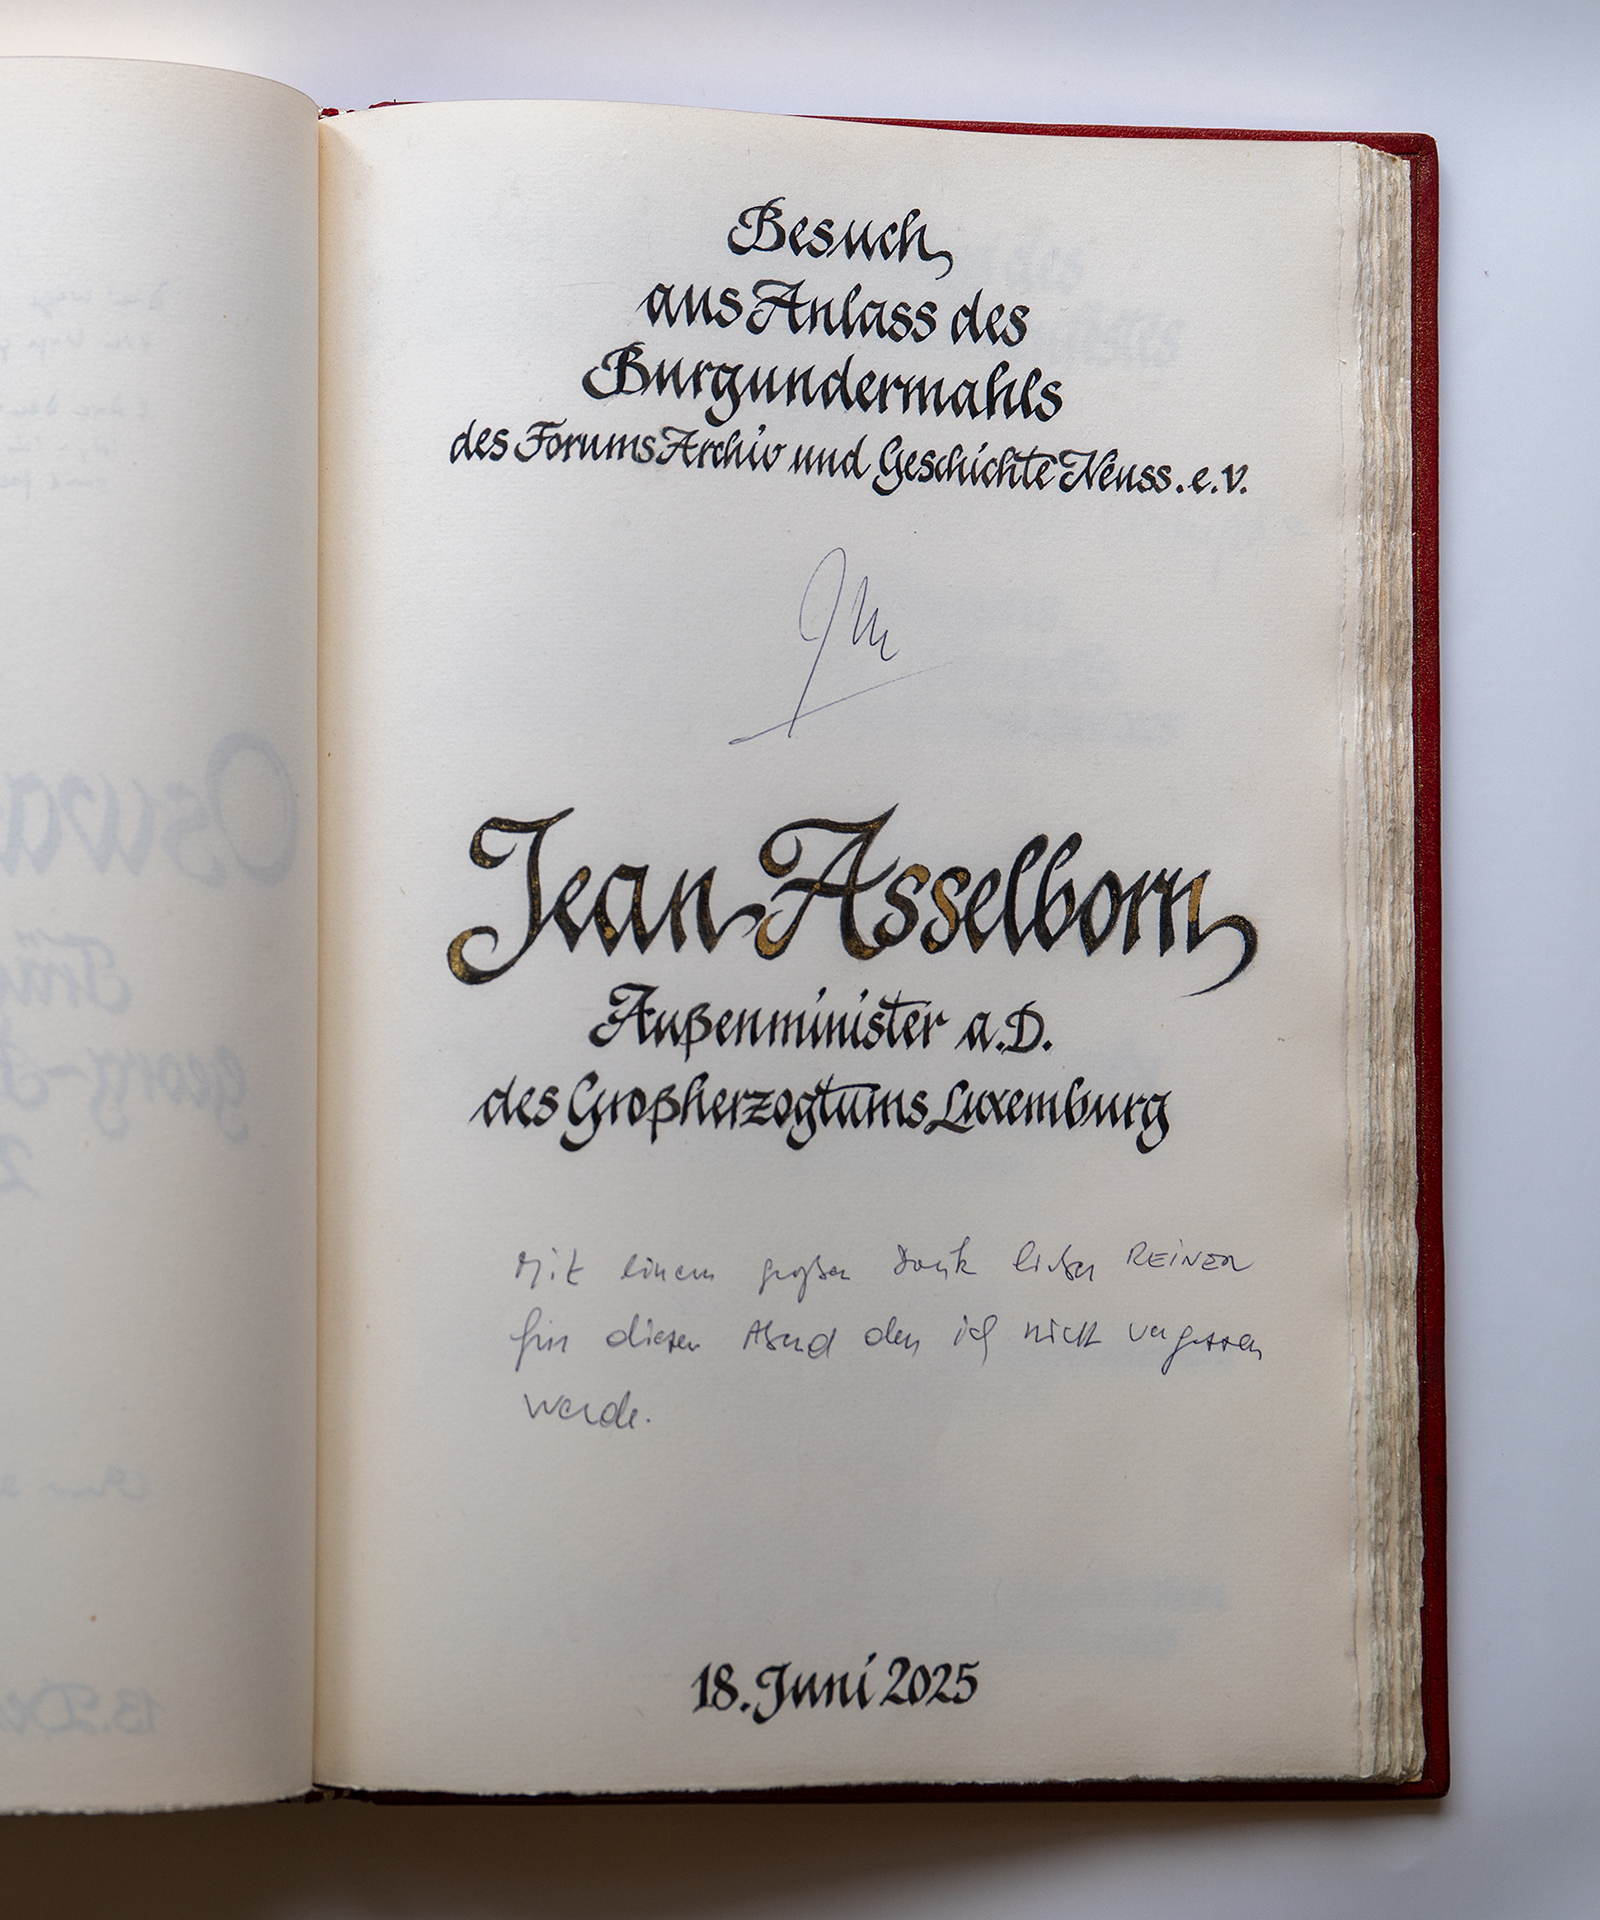 Besuch
aus Anlass des
Burgundermahls
des Forums Archiv und Geschichte Neuss. e.V.
Jean Asselborn
Außenminister a.D.
des Großherzogtums Luxemburg
Mit einem großen Dank lieber REINER
für diesen Abend den ich nicht vergessen
werde.
18. Juni 2025